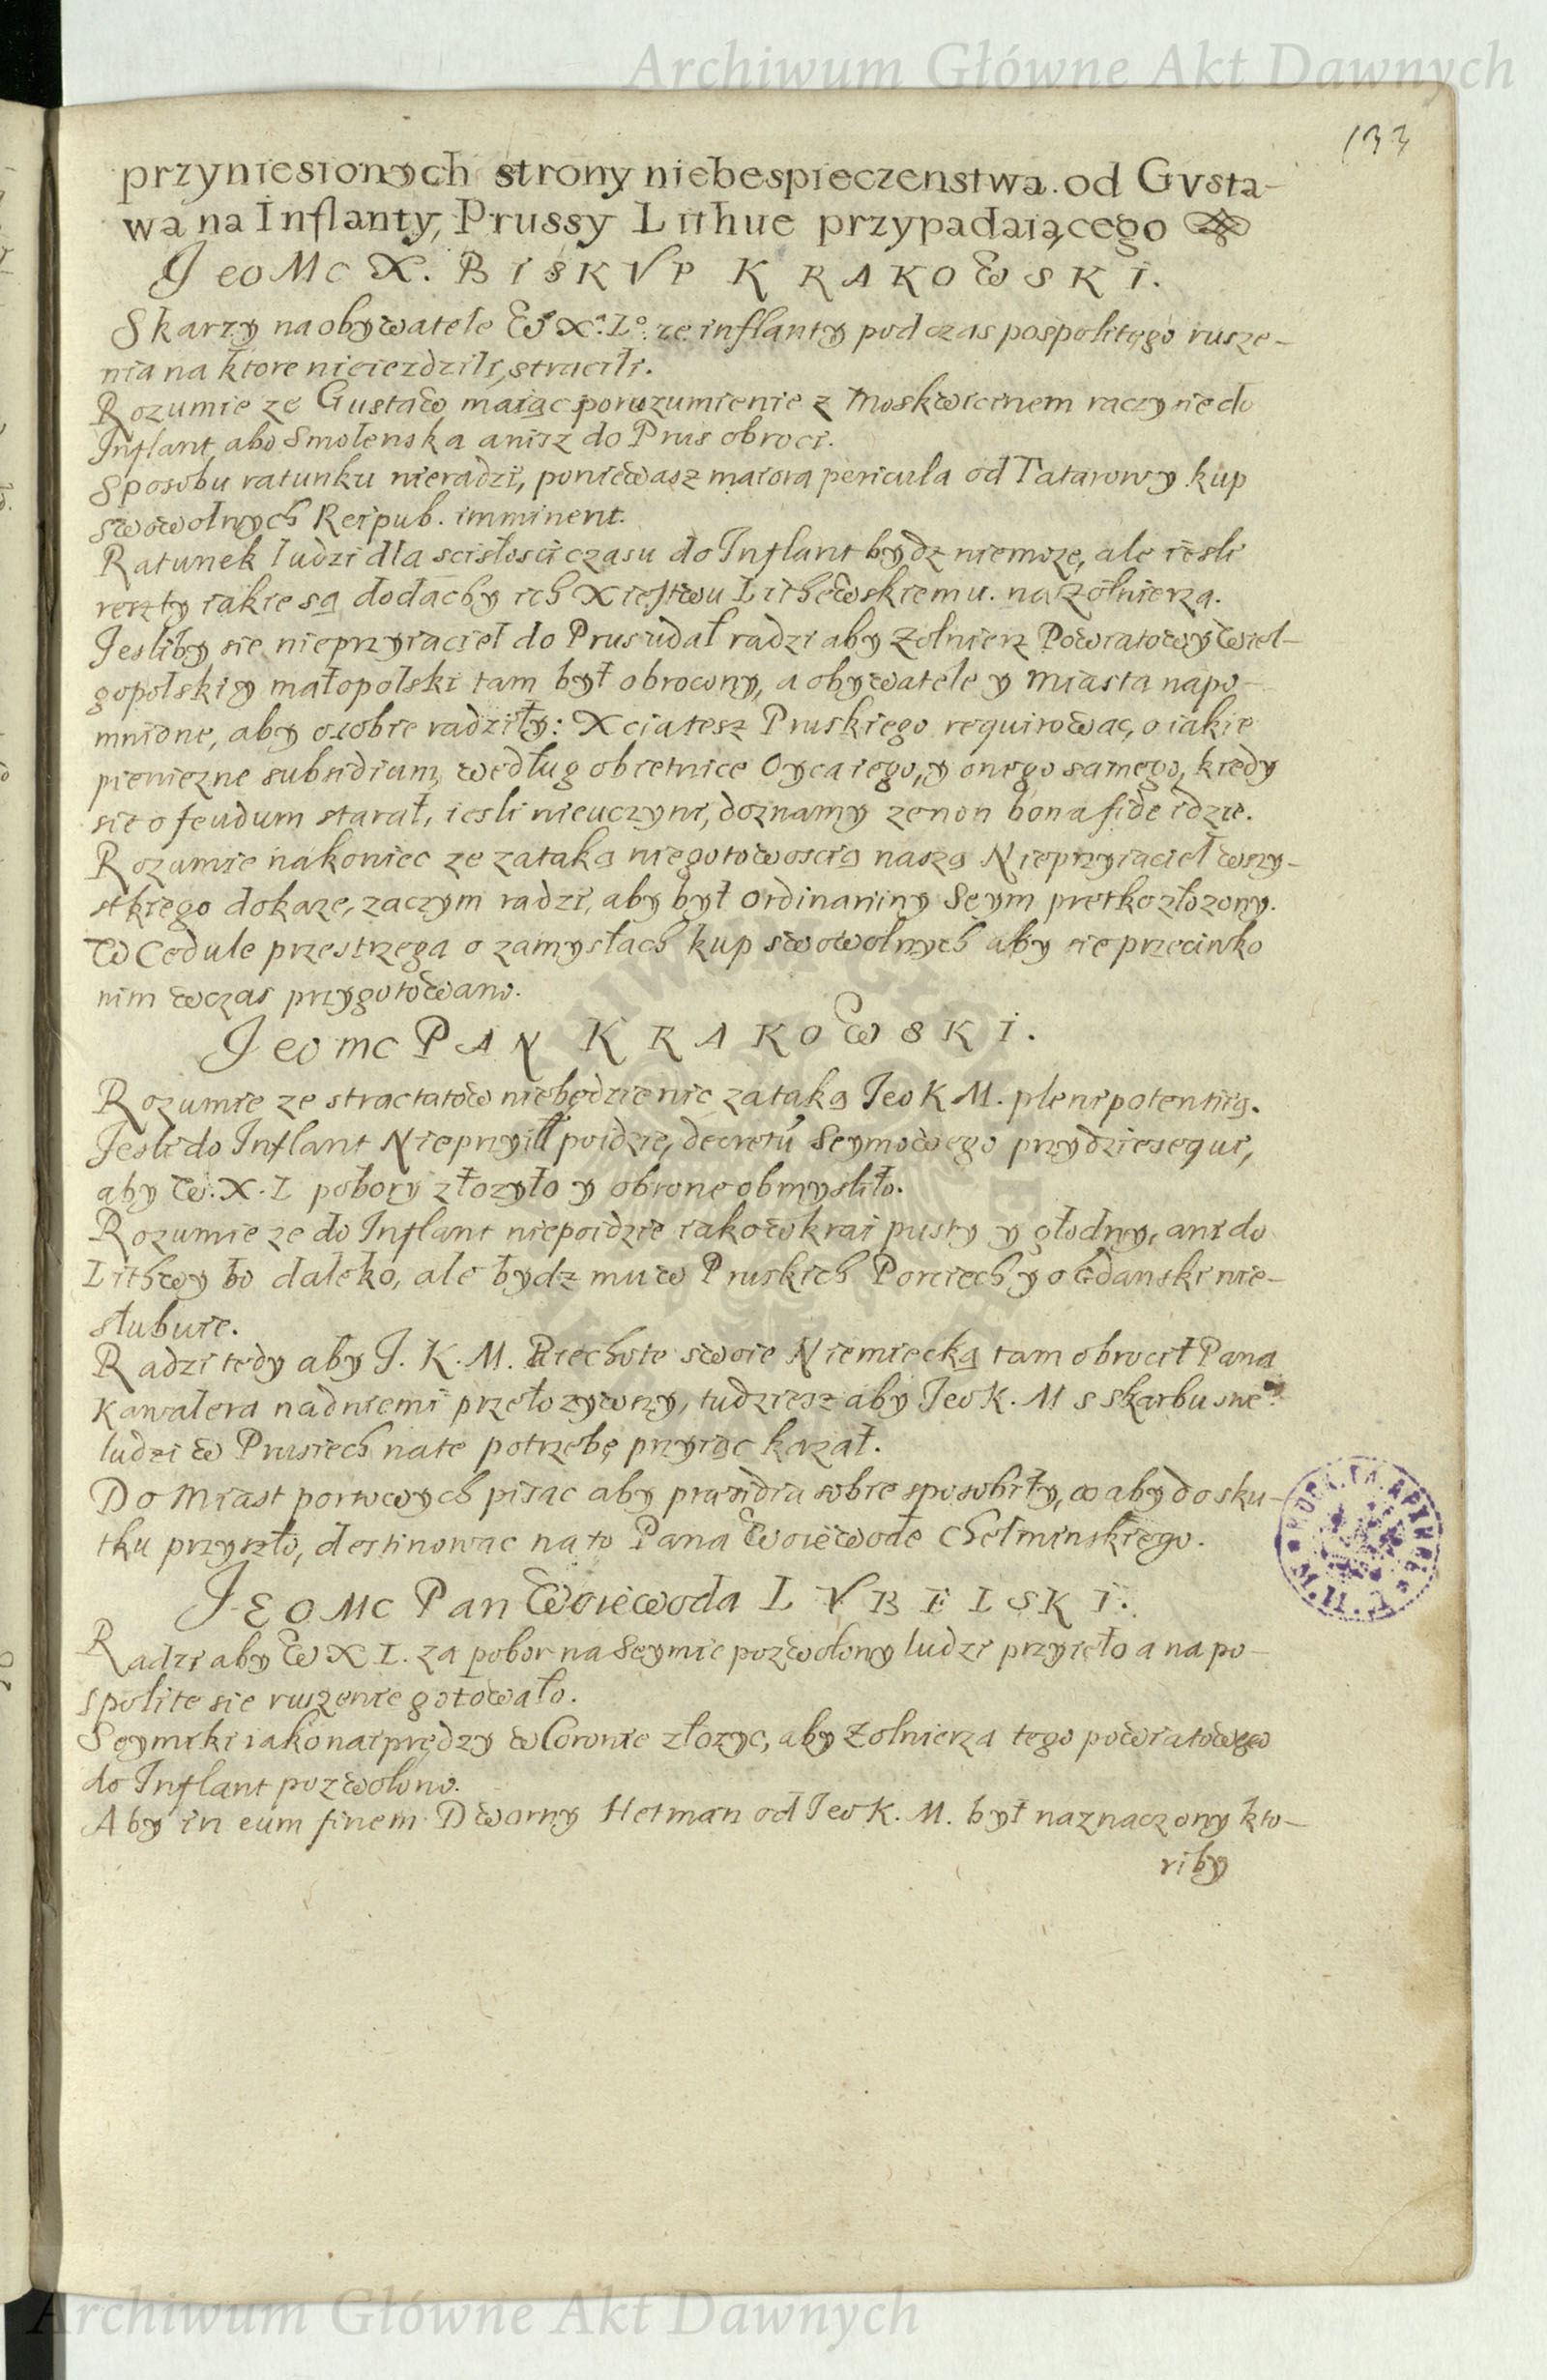 Archiwum Główne Akt Dawnych
133
przyniesionych strony niebespieczenstwa od Gvsta-
wa na Inflanty, Prussy Lithue przypadaiącego
Jeo Mc X. BISKVP KRAKOWSKI.
Skarzy na obywatele W. X. Lo. ze inflanty pod czas pospolitego rusze-
nia na ktore nieiezdzili, stracili.
Rozumie ze Gustaw maiąc porozumienie z Moskwicinem raczy sie do
Inflant, abo Smolenska anisz do Prus obroci.
Sposobu ratunku nieradzi, poniewasz maiora pericula od Tatarow y kup
swowolnych Reipub. imminent.
Ratunek ludzi dla scisłosci czasu do Inflant bydz niemoze, ale iesli
reszty iakie są dodacby ich Xięstwu Lithewskiemu. na Zołnierza.
Jesliby sie nieprzyiaciel do Prus udał radzi aby Zołnierz Powiatowy Wiel-
gopolski y małopolski tam był obrocony, a obywatele y Miasta napo-
mnione, aby o sobie radziły: Xcia tesz Pruskiego requirowac, o iakie
pieniezne subsidium, według obietnice Oyca iego, y onego samego, kiedy
sie o feudum starał, iesli nieuczyni, doznamy ze non bona fide idzie.
Rozumie nakoniec ze zataką niegotowoscią naszą Nieprzyiaciel wszy-
stkiego dokaze, zaczym radzi, aby był Ordinariny Seym prętko złozony.
W Cedule przestrzega o zamysłach kup swowolnych aby sie przeciwko
nim wczas przygotowano.
Jeo mc PAN KRAKOWSKI.
Rozumie ze stractatow niebędzie nic zataką Jeo K M. plenipotentią.
Jesli do Inflant Nieprzyill poidzie, decretu Seymowego przydzie sequi,
aby W. X. L pobory złozyło y obrone obmysliło.
Rozumie ze do Inflant niepoidzie iako w krai pusty y głodny, ani do
Lithwy bo daleko, ale bydz mu w Pruskich Porciech y o Gdanski nie-
slubuie.
Radzi tedy aby J. K. M. Piechote swoie Niemiecką tam obrocił Pana
Kawalera nadniemi przełozywszy, tudziesz aby Jeo K. M s skarbu sne
ludzi w Prusiech na te potrzebę przyiąc kazał.
Do Miast portowych pisac aby praesidia sobie sposobiły, co aby do sku-
tku przyszło, destinowac na to Pana Woiewode Chełminskiego.
JEO MC Pan Woiewoda LVBELSKI.
Radzi aby W X L. za pobor na Seymie pozwolony ludzi przyięło a na po-
spolite sie ruszenie gotowało.
Seymiki iako naiprędzy w Coronie złozyc, aby Zolnierza tego powiatowego
do Inflant pozwolono.
Aby in eum finem Dworny Hetman od Jeo K. M. był naznaczony kto-
riby
Archiwum Główne Akt Dawnych